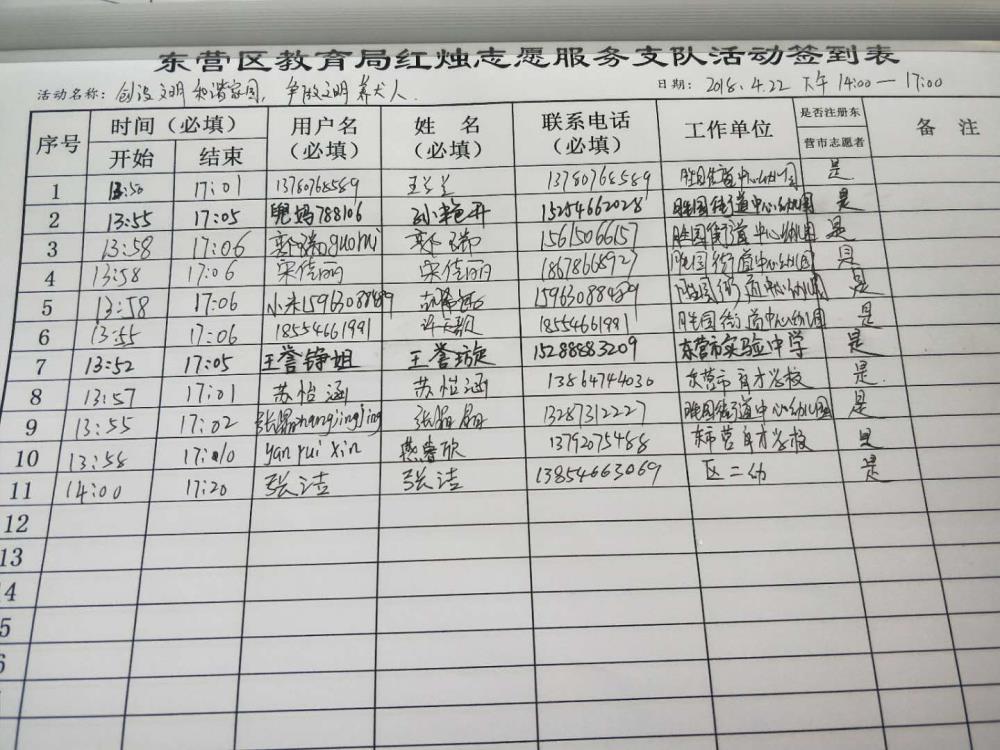 东营区教育局红烛志愿服务支队活动签到表
活动名称：创设文明和谐家园，争做文明养犬人. 日期：2018.4.22 下午14:00—17:00
序号 时间（必填） 用户名（必填） 姓名（必填） 联系电话（必填） 工作单位 是否注册东营市志愿者 备注
开始 结束
1 13:50 17:01 13780768589 王兰兰 13780768589 胜园街道中心幼儿园 是
2 13:55 17:05 妈788106 孙艳丹 15254662028 胜园街道中心幼儿园 是
3 13:58 17:06 郭瑞guorui 郭瑞 15615066157 胜园街道中心幼儿园 是
4 13:58 17:06 宋佳丽 宋佳丽 18678668927 胜园街道中心幼儿园 是
5 13:58 17:06 小米15963088489 15963088489 胜园街道中心幼儿园 是
6 13:55 17:06 18554661991 18554661991 胜园街道中心幼儿园 是
7 13:52 17:05 王誉铮姐 王誉璇 15288883209 东营市实验中学 是
8 13:57 17:01 苏怡涵 苏怡涵 13864744030 东营市育才学校 是.
9 13:55 17:02 张晶zhangjingjing 张晶晶 13287312227 胜园街道中心幼儿园 是
10 13:58 17:10 yan rui xin 燕睿欣 13792075488 东市营育才学校 是
11 14:00 17:20 张洁 张洁 13854663069 区二幼 是
12
13
4
5
6